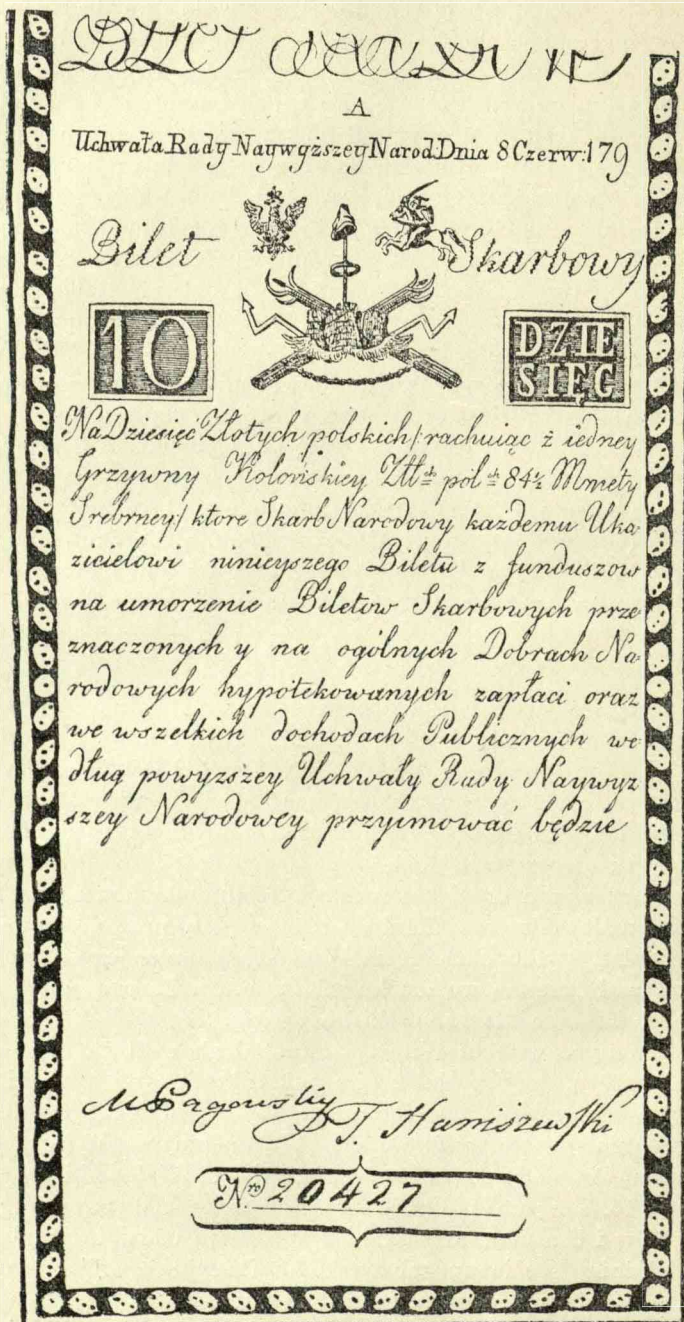 A
Uchwała Rady Naywyższey Narod: Dnia 8 Czerw: 179
Bilet Skarbowy
10
DZIE
SIĘĆ
Na Dziesięć Złotych polskich /: rachuiąc z iedney
Grzywny Kolońskiey Złł: pol: 84½ Mmety
Srebrney:/ ktore Skarb Narodowy każdemu Uka-
zicielowi ninieyszego Biletu z funduszow
na umorzenie Biletow Skarbowych prze
znaczonych y na ogólnych Dobrach Na-
rodowych hypotekowanych zapłaci oraz
we wszelkich dochodach Publicznych we
dług powyzszey Uchwały Rady Naywyz
szey Narodowey przyimować będzie
T. Staniszewski
No 20427